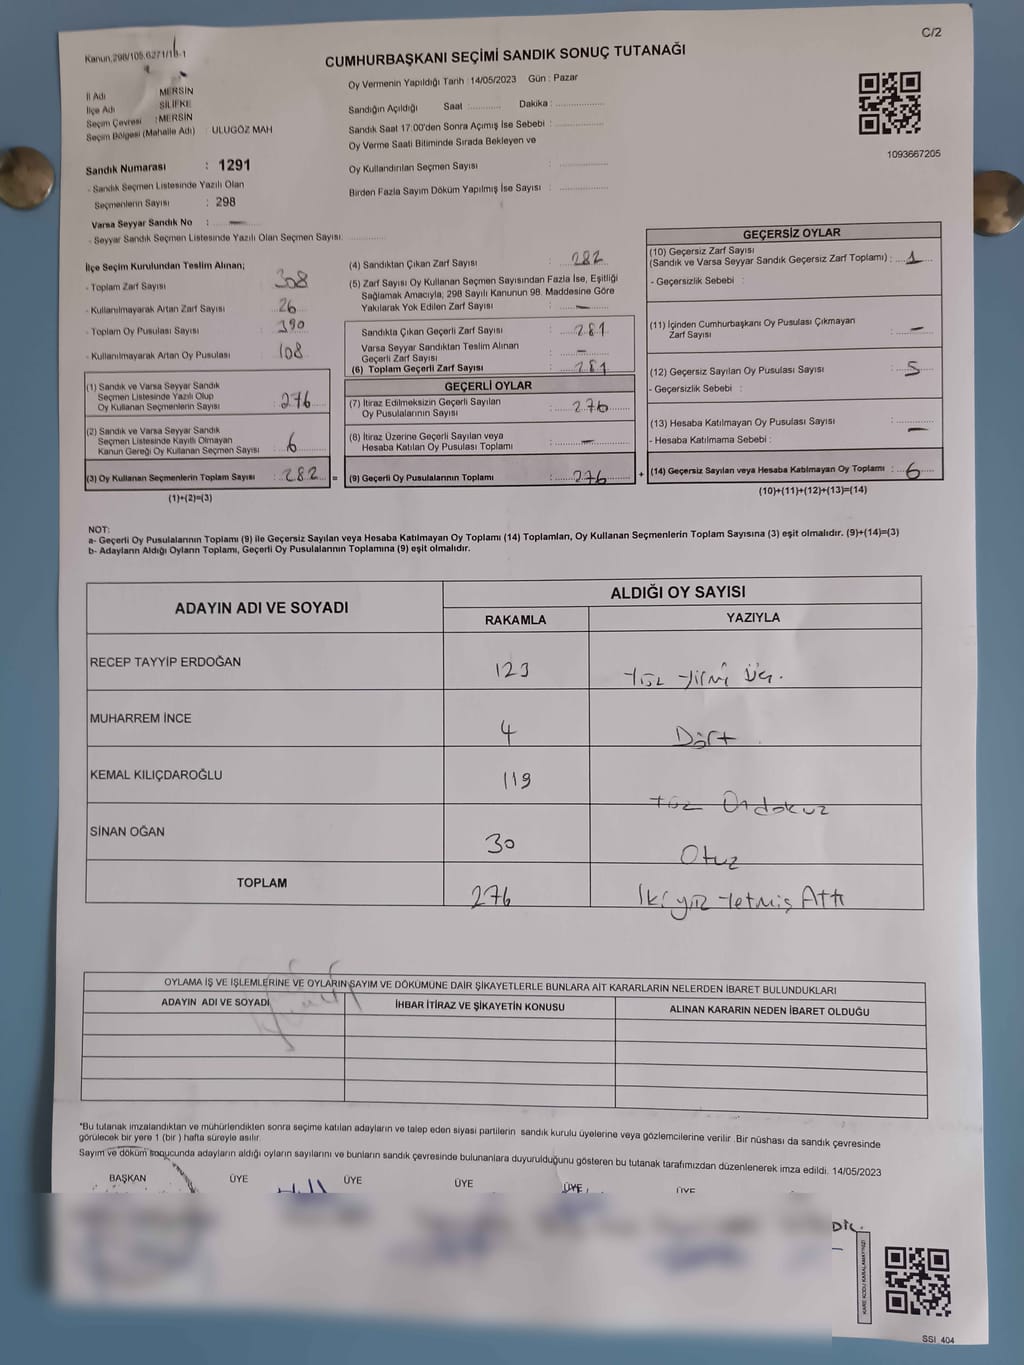 C/2
Kanun,298/105.6271/18-1
CUMHURBAŞKANI SEÇİMİ SANDIK SONUÇ TUTANAĞI
İl Adı MERSİN
İlçe Adı SİLİFKE
Seçim Çevresi : MERSİN
Seçim Bölgesi (Mahalle Adı) : ULUGÖZ MAH
Sandık Numarası : 1291
- Sandık Seçmen Listesinde Yazılı Olan
Seçmenlerin Sayısı : 298
Varsa Seyyar Sandık No : —
- Seyyar Sandık Seçmen Listesinde Yazılı Olan Seçmen Sayısı: ............
Oy Vermenin Yapıldığı Tarih :14/05/2023 Gün : Pazar
Sandığın Açıldığı Saat :............ Dakika :................
Sandık Saat 17:00'den Sonra Açımış İse Sebebi :................
Oy Verme Saati Bitiminde Sırada Bekleyen ve
Oy Kullandırılan Seçmen Sayısı :................
Birden Fazla Sayım Döküm Yapılmış İse Sayısı :................
1093667205
İlçe Seçim Kurulundan Teslim Alınan;
- Toplam Zarf Sayısı : 308
- Kullanılmayarak Artan Zarf Sayısı : 26
- Toplam Oy Pusulası Sayısı : 390
- Kullanılmayarak Artan Oy Pusulası : 108
(1) Sandık ve Varsa Seyyar Sandık
Seçmen Listesinde Yazılı Olup
Oy Kullanan Seçmenlerin Sayısı : 276
(2) Sandık ve Varsa Seyyar Sandık
Seçmen Listesinde Kayıtlı Olmayan
Kanun Gereği Oy Kullanan Seçmen Sayısı : 6
(3) Oy Kullanan Seçmenlerin Toplam Sayısı : 282 =
(1)+(2)=(3)
(4) Sandıktan Çıkan Zarf Sayısı : 282
(5) Zarf Sayısı Oy Kullanan Seçmen Sayısından Fazla İse, Eşitliği
Sağlamak Amacıyla; 298 Sayılı Kanunun 98. Maddesine Göre
Yakılarak Yok Edilen Zarf Sayısı : —
Sandıkta Çıkan Geçerli Zarf Sayısı : 281
Varsa Seyyar Sandıktan Teslim Alınan
Geçerli Zarf Sayısı : —
(6) Toplam Geçerli Zarf Sayısı : 281
GEÇERLİ OYLAR
(7) İtiraz Edilmeksizin Geçerli Sayılan
Oy Pusulalarının Sayısı : 276
(8) İtiraz Üzerine Geçerli Sayılan veya
Hesaba Katılan Oy Pusulası Toplamı : —
(9) Geçerli Oy Pusulalarının Toplamı : 276 +
GEÇERSİZ OYLAR
(10) Geçersiz Zarf Sayısı
(Sandık ve Varsa Seyyar Sandık Geçersiz Zarf Toplamı) : 1
- Geçersizlik Sebebi :
(11) İçinden Cumhurbaşkanı Oy Pusulası Çıkmayan
Zarf Sayısı : —
(12) Geçersiz Sayılan Oy Pusulası Sayısı : 5
- Geçersizlik Sebebi :
(13) Hesaba Katılmayan Oy Pusulası Sayısı : —
- Hesaba Katılmama Sebebi :
(14) Geçersiz Sayılan veya Hesaba Katılmayan Oy Toplamı : 6
(10)+(11)+(12)+(13)=(14)
NOT:
a- Geçerli Oy Pusulalarının Toplamı (9) ile Geçersiz Sayılan veya Hesaba Katılmayan Oy Toplamı (14) Toplamları, Oy Kullanan Seçmenlerin Toplam Sayısına (3) eşit olmalıdır. (9)+(14)=(3)
b- Adayların Aldığı Oyların Toplamı, Geçerli Oy Pusulalarının Toplamına (9) eşit olmalıdır.
ADAYIN ADI VE SOYADI ALDIĞI OY SAYISI
RAKAMLA YAZIYLA
RECEP TAYYİP ERDOĞAN 123 Yüz Yirmi Üç.
MUHARREM İNCE 4 Dört
KEMAL KILIÇDAROĞLU 119 Yüz Ondokuz
SİNAN OĞAN 30 Otuz
TOPLAM 276 İki yüz Yetmiş Altı
OYLAMA İŞ VE İŞLEMLERİNE VE OYLARIN SAYIM VE DÖKÜMÜNE DAİR ŞİKAYETLERLE BUNLARA AİT KARARLARIN NELERDEN İBARET BULUNDUKLARI
ADAYIN ADI VE SOYADI İHBAR İTİRAZ VE ŞİKAYETİN KONUSU ALINAN KARARIN NEDEN İBARET OLDUĞU
*Bu tutanak imzalandıktan ve mühürlendikten sonra seçime katılan adayların ve talep eden siyasi partilerin sandık kurulu üyelerine veya gözlemcilerine verilir. Bir nüshası da sandık çevresinde
görülecek bir yere 1 (bir ) hafta süreyle asılır.
Sayım ve döküm sonucunda adayların aldığı oyların sayılarını ve bunların sandık çevresinde bulunanlara duyurulduğunu gösteren bu tutanak tarafımızdan düzenlenerek imza edildi. 14/05/2023
BAŞKAN ÜYE ÜYE ÜYE ÜYE ÜYE
KARE KODU KARALAMAYINIZ!
SSI_404